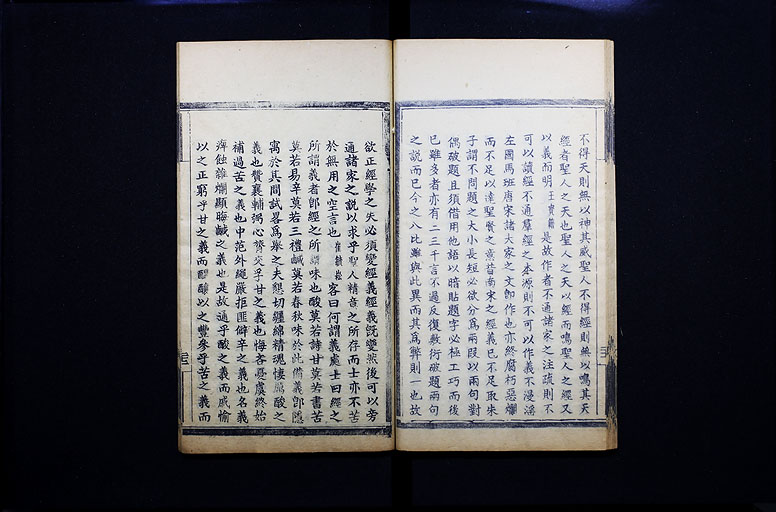 不得天則無以神其威聖人不得經則無以鳴其天
經者聖人之天也聖人之天以經而鳴聖人之經又
以義而明王賓籲是故作者不通諸家之注疏則不
可以讀經不通羣經之本源則不可以作義不漫淆
左國馬班唐宋諸大家之文卽作也亦終腐朽惡爛
而不足以達聖賢之意昔南宋之經義已不足取朱
子謂不問題之大小長短必欲分爲兩段以兩句對
偶破題且須借用他語以暗貼題字必極工巧而後
已雖多者亦有二三千言不過反復敷衍破題兩句
之說而已今之八比雖與此異而其爲弊則一也故
欲正經學之失必須變經義經義旣變然後可以旁
通諸家之說以求乎聖人精意之所存而士亦不苦
於無用之空言也崔毓崧客曰何謂義處士曰經之
所謂義者卽經之所謂味也酸莫若詩甘莫若書苦
莫若易辛莫若三禮鹹莫若春秋味於此備義卽隱
寓於其間試畧爲舉之夫懇切纏綿精魂悽厲酸之
義也贊襄輔弼心膂交孚甘之義也悔吝憂虞終始
補過苦之義也中范外繩嚴拒匪僻辛之義也名義
剝蝕雜爛顯晦鹹之義也是故通乎酸之義而戚愉
以之正窮乎甘之義而醪釀以之豐參乎苦之義而